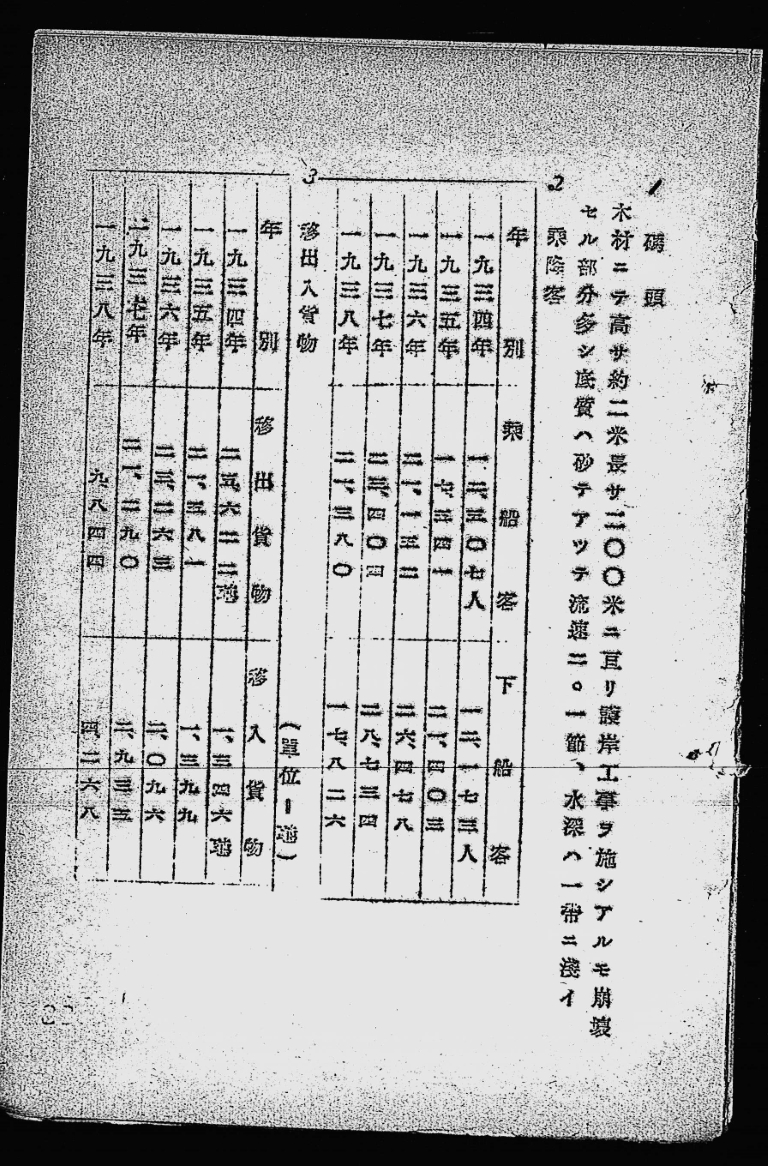 1 碼頭
木材ニテ高サ約二米長サ二〇〇米ニ亘リ護岸工事ヲ施シアルモ崩壞
セル部分多シ底質ハ砂テアツテ流速二。一節、水深ハ一帶ニ淺イ
2 乘降客
年別 乘船客 下船客
一九三四年 一二、三〇七人 一二、一七三人
一九三五年 一七、三四一 二一、四〇三
一九三六年 二一、一三二 二六、四七八
一九三七年 二三、四〇四 二八、七三四
一九三八年 二一、三八〇 一七、八二六
3 移出入貨物
(單位=瓲)
年別 移出貨物 移入貨物
一九三四年 二五、六二二瓲 一、三四六瓲
一九三五年 二一、三八一 一、三九九
一九三六年 二三、二六三 二、〇九六
一九三七年 二一、二九〇 二、九三三
一九三八年 九、八四四 四、二六八